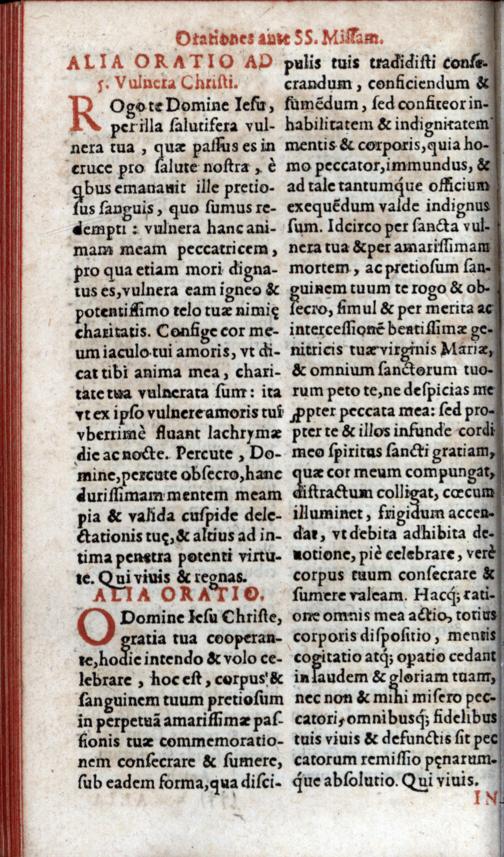 Orationes ante SS. Missam.
ALIA ORATIO AD
5. Vulnera Christi.
ROgo te Domine Iesu,
per illa salutifera vul-
nera tua, quæ passus es in
cruce pro salute nostra, è
qbus emanauit ille pretio-
sus sanguis, quo sumus re-
dempti: vulnera hanc ani-
mam meam peccatricem,
pro qua etiam mori digna-
tus es, vulnera eam igneo &
potentissimo telo tuæ nimię
charitatis. Confige cor me-
um iaculo tui amoris, vt di-
cat tibi anima mea, chari-
tate tua vulnerata sum: ita
vt ex ipso vulnere amoris tui
vberrimè fluant lachrymæ
die ac nocte. Percute, Do-
mine, percute obsecro, hanc
durissimam mentem meam
pia & valida cuspide dele-
ctationis tuę, & altius ad in-
tima penetra potenti virtu-
te. Qui viuis & regnas.
ALIA ORATIO.
O Domine Iesu Christe,
gratia tua cooperan-
te, hodie intendo & volo ce-
lebrare, hoc est, corpus & 
sanguinem tuum pretiosum
in perpetuā amarissimæ pas-
sionis tuæ commemoratio-
nem consecrare & sumere,
sub eadem forma, qua disci-
pulis tuis tradidisti conse-
crandum, conficiendum &
sumēdum, sed confiteor in-
habilitatem & indignitatem
mentis & corporis, quia ho-
mo peccator, immundus, &
ad tale tantumque officium
exequēdum valde indignus
sum. Idcirco per sancta vul-
nera tua & per amarissimam
mortem, ac pretiosum san-
guinem tuum te rogo & ob-
secro, simul & per merita ac
intercessionē beatissimæ ge-
nitricis tuæ virginis Mariæ,
& omnium sanctorum tuo-
rum peto te, ne despicias me
ꝓpter peccata mea: sed pro-
pter te & illos infunde cordi
meo spiritus sancti gratiam,
quæ cor meum compungat,
distractum colligat, cœcum
illuminet, frigidum accen-
dat, vt debita adhibita de-
uotione, piè celebrare, verè
corpus tuum consecrare &
sumere valeam. Hacq; rati-
one omnis mea actio, totius
corporis dispositio, mentis
cogitatio atq; opatio cedant
in laudem & gloriam tuam,
nec non & mihi misero pec-
catori, omnibusq; fidelibus
tuis viuis & defunctis sit pec
catorum remissio pęnarum-
que absolutio. Qui viuis.
IN